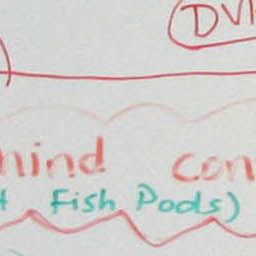 DVI
hind con
t Fish Pods)